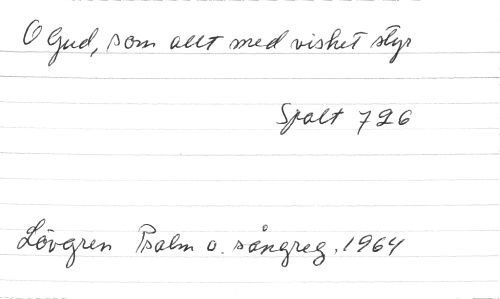 O Gud, som allt med vishet styr
Spalt 726
Lövgren Psalm o. sångreg. 1964